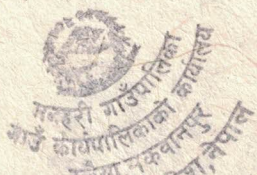 मनहरी गाउँपालिका
गाउँ कार्यपालिकाको कार्यालय
मकवानपुर
नेपाल